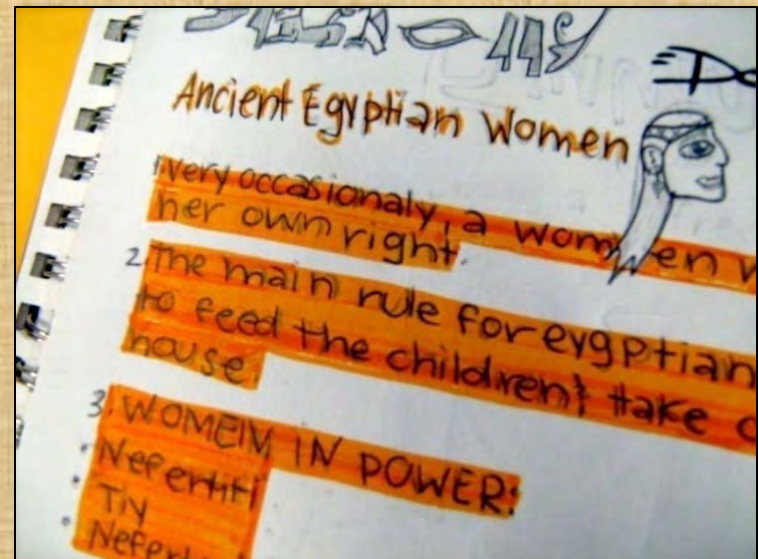 Ancient Egyptian Women
1. very occasionaly, a women
her own right.
2. The main rule for eygptian
to feed the children & take
house.
3. WOMEIM IN POWER:
• Nefertiti
• Tiy